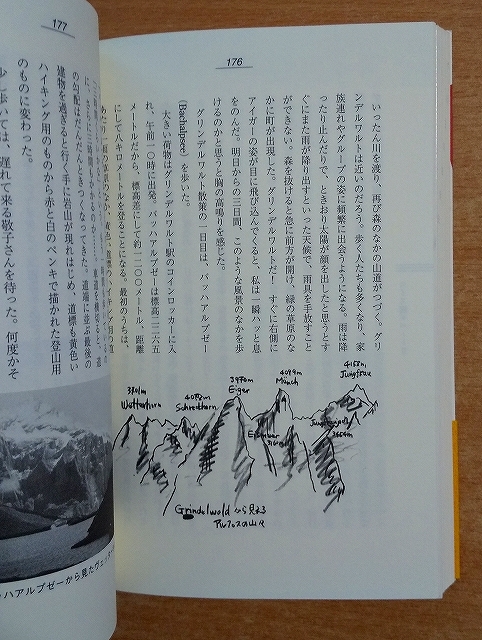 176
いったん川を渡り、再び森のなかの山道がつづく。グリ
ンデルワルトは近いのだろう。歩く人たちも多くなり、家
族連れやグループの姿に頻繁に出会うようになる。雨は降
ったり止んだりで、ときおり太陽が顔を出したと思うとす
ぐにまた雨が降り出すといった天候で、雨具を手放すこと
ができない。森を抜けると急に前方が開け、緑の草原のな
かに町が出現した。グリンデルワルトだ! すぐに右側に
アイガーの姿が目に飛び込んでくると、私は一瞬ハッと息
をのんだ。明日からの三日間、このような風景のなかを歩
けるのかと思うと胸の高鳴りを感じた。
グリンデルワルト散策の一日目は、バッハアルプゼー
(Bachalpsee)を歩いた。
大きい荷物はグリンデルワルト駅のコインロッカーに入
れ、午前一〇時に出発。バッハアルプゼーは標高二二六五
メートルだから、標高差にして約一二〇〇メートル、距離
にして八キロメートルを登ることになる。最初のうちは、
3701m
Wetterhorn
4078m
Schreckhorn
3970m
Eiger
4099m
Mönch
4158m
Jungfrau
Grindelwald から見える
アルプスの山々
177
の勾配はだんだんときつくなってきた。道端に並ぶ最後の
建物を過ぎると行く手に岩山が現れはじめ、道標も黄色い
ハイキング用のものから赤と白のペンキで描かれた登山用
のものに変わった。
少し歩いては、遅れて来る敬子さんを待った。何度かそ
ハアルプゼーから見たヴェッター